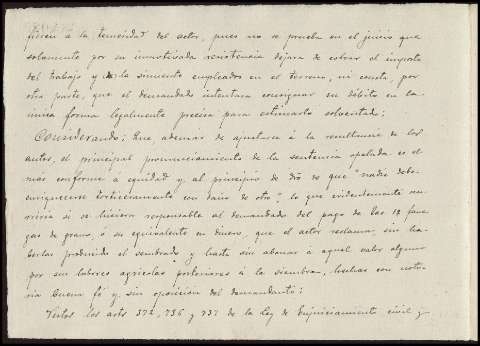 fieren á la temeridad del actor, pues no se prueba en el juicio que
solamente por su inmotivada resistencia dejara de cobrar el importe
del trabajo y de la simiente empleados en el terreno, ni consta, por
otra parte, que el demandado intentara consignar su débito en la
única forma legalmente precisa para estimarlo solventado;
Considerando: Que además de ajustarse á la resultancia de los
autos, el principal pronunciamiento de la sentencia apelada es el
más conforme á equidad y al principio de dro de que "nadie debe
enriquecerse torticieramente con daño de otro", lo que evidentemente
si se hiciera responsable al demandado del pago de las 12 fane
gas de grano, ó su equivalente en dinero, que el actor reclama, sin ha-
berlas producido el sembrado y hasta sin abonar á aquel valor alguno
por sus labores agrícolas posteriores á la siembra, hechas con noto-
ria buena fé y sin oposición del demandante:
Vistos los arts 372, 736 y 737 de la Ley de Enjuiciamiento civil y